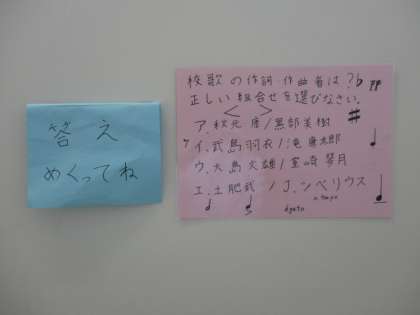 答え
めくってね
校歌の作詞作曲者は?
正しい組合せを選びなさい。
ア.秋元康/黒部美樹
イ.武島羽衣/滝廉太郎
ウ.大島文雄/室崎琴月
エ.土肥武/J.シベリウス